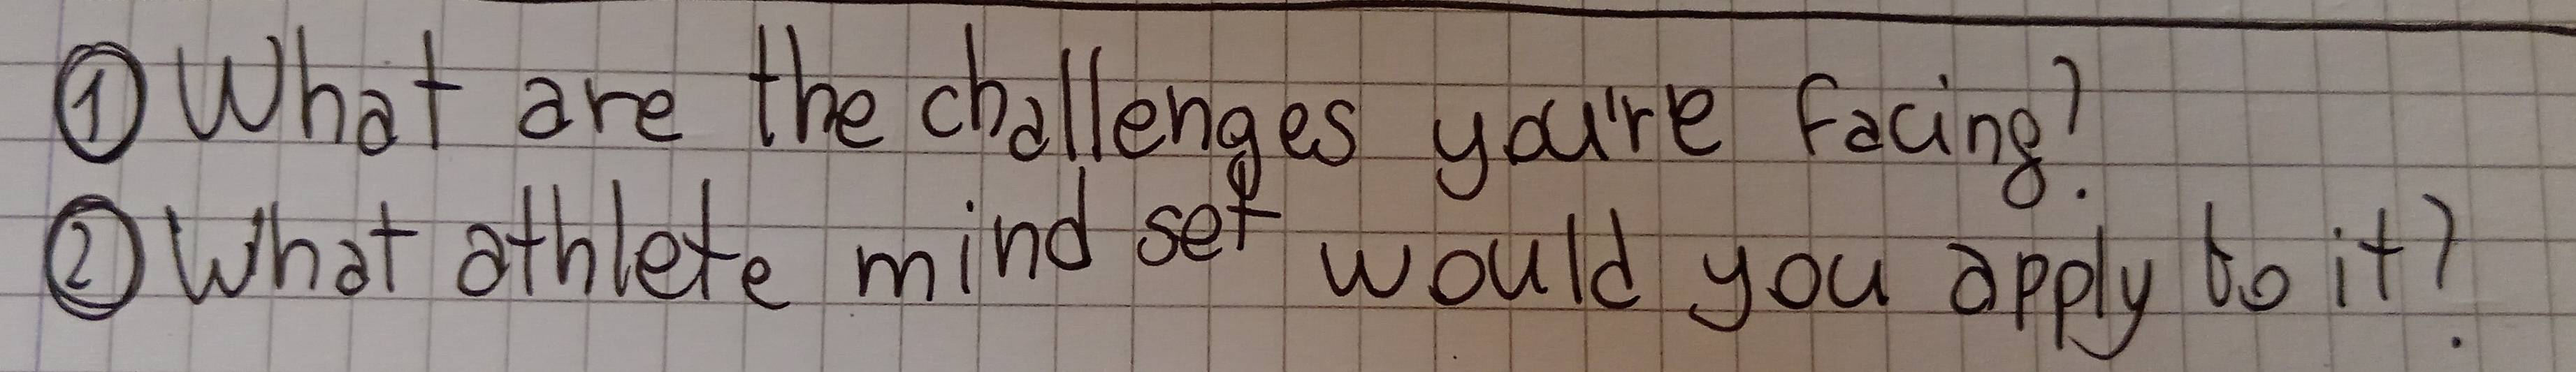 ① What are the challenges you're facing?
② What athlete mind set would you apply to it?